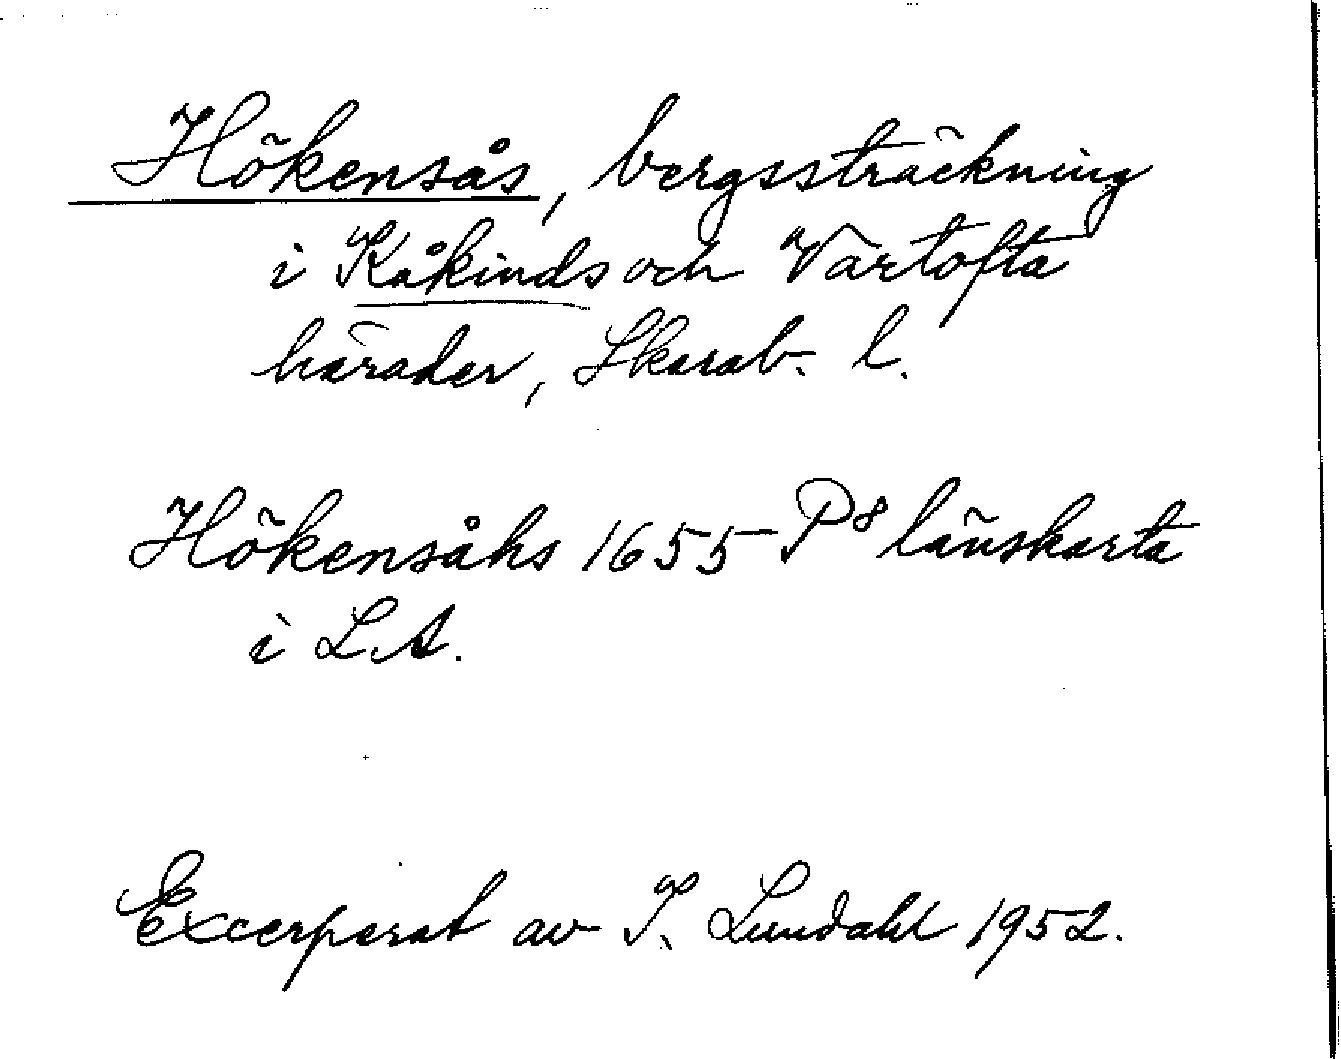 Hökensås, bergssträckning
i Kåkinds och Vartofta
härader, Skarab. l.
Hökensåhs 1655 P8 länskarta
i L.A.
Excerperat av I. Lundahl 1952.